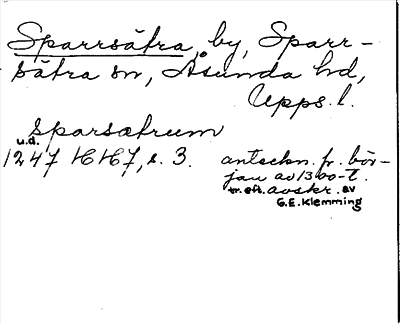 Sparrsätra, by, Sparr-
sätra sn, Åsunda hd,
Upps. l.
Sparsætrum
u.d.
1247 HH7, s. 3. anteckn. fr. bör-
jan av 1300-t.
tr. eft. avskr. av
G.E. Klemming